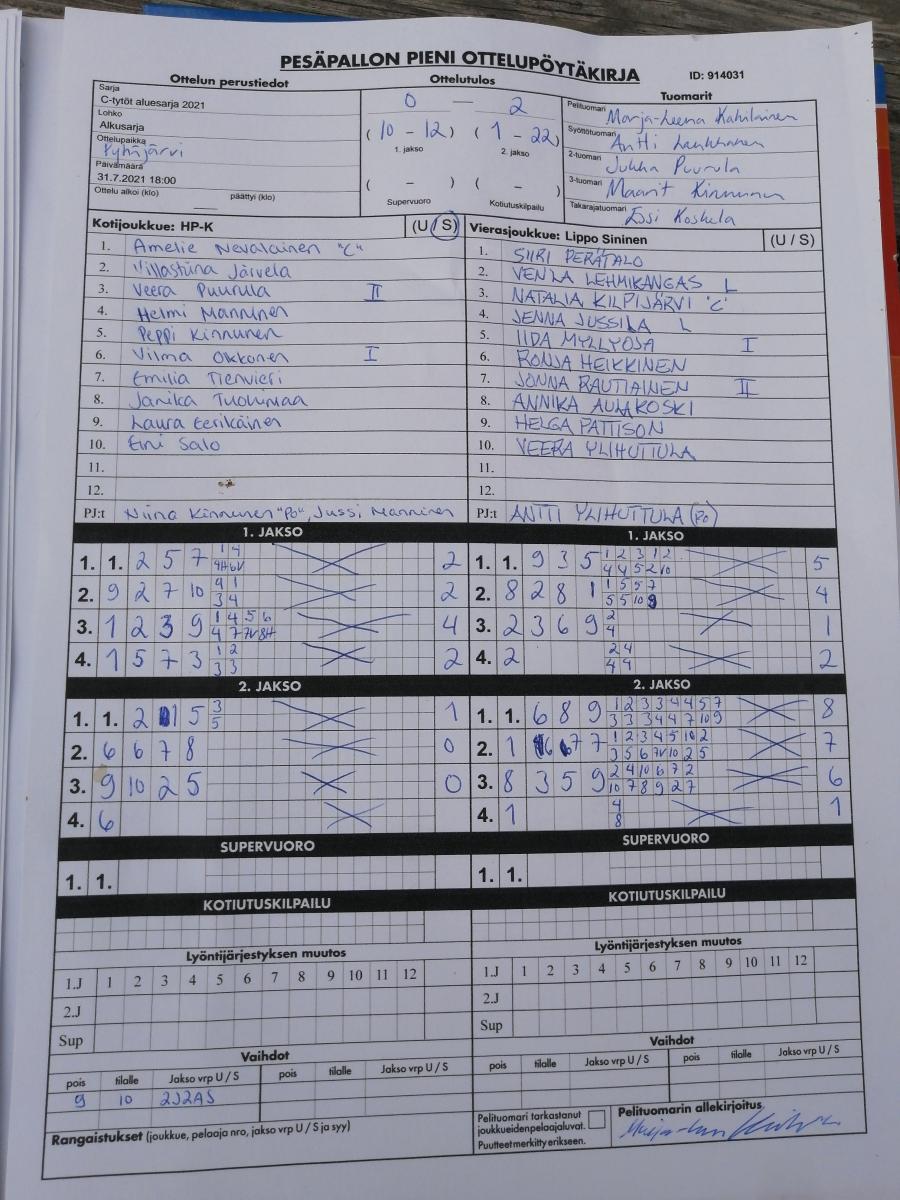 PESÄPALLON PIENI OTTELUPÖYTÄKIRJA
ID: 914031
Ottelun perustiedot
Sarja
C-tytöt aluesarja 2021
Lohko
Alkusarja
Ottelupaikka
Pyhäjärvi
Päivämäärä
31.7.2021 18:00
Ottelu alkoi (klo) päättyi (klo)
Ottelutulos
0 — 2
(10 - 12) (1 - 22)
1. jakso 2. jakso
( - ) ( - )
Supervuoro Kotiutuskilpailu
Tuomarit
Pelituomari Marja-Leena Kahilainen
Syöttötuomari Antti
2-tuomari Jukka Puurula
3-tuomari Maarit Kinnunen
Takarajatuomari Essi Koskela
Kotijoukkue: HP-K (U / S)
1. Amelie Nevalainen "C"
2. Villastiina Järvelä
3. Veera Puurula II
4. Helmi Manninen
5. Peppi Kinnunen
6. Vilma Okkonen I
7. Emilia Tienvieri
8. Janika Tuohimaa
9. Laura Eerikäinen
10. Eini Salo
11.
12.
PJ:t Niina Kinnunen "Po", Jussi Manninen
Vierasjoukkue: Lippo Sininen (U / S)
1. SIIRI PERÄTALO
2. VENLA LEHMIKANGAS L
3. NATALIA KILPIJÄRVI "C"
4. JENNA JUSSILA L
5. IIDA MYLLYOJA I
6. RONJA HEIKKINEN
7. JONNA RAUTIAINEN II
8. ANNIKA AULAKOSKI
9. HELGA PATTISON
10. VEERA YLIHUTTULA
11.
12.
PJ:t ANTTI YLIHUTTULA (PO)
1. JAKSO
1. 1. 2 5 7 1 4 2
4H 6V
2. 9 2 7 10 9 1 2
3 4
3. 1 2 3 9 1 4 5 6 4
4 7 7V 8H
4. 1 5 7 3 1 2 2
3 3
1. JAKSO
1. 1. 9 3 5 1 2 3 1 2 5
4 4 5 2 10
2. 8 2 8 1 1 5 5 7 4
5 5 10 9
3. 2 3 6 9 2 1
4
4. 2 2 4 2
4 4
2. JAKSO
1. 1. 2 5 3 1
5
2. 6 6 7 8 0
3. 9 10 2 5 0
4. 6
2. JAKSO
1. 1. 6 8 9 1 2 3 3 4 4 5 7 8
3 3 3 4 4 7 10 9
2. 1 6 7 7 1 2 3 4 5 10 2 7
3 5 6 7V 10 2 5
3. 8 3 5 9 2 4 10 6 7 2 6
10 7 8 9 2 7
4. 1 4 1
8
SUPERVUORO
1. 1.
SUPERVUORO
1. 1.
KOTIUTUSKILPAILU
KOTIUTUSKILPAILU
Lyöntijärjestyksen muutos
1.J 1 2 3 4 5 6 7 8 9 10 11 12
2.J
Sup
Lyöntijärjestyksen muutos
1.J 1 2 3 4 5 6 7 8 9 10 11 12
2.J
Sup
Vaihdot
pois tilalle Jakso vrp U / S pois tilalle Jakso vrp U / S
9 10 2J2AS
Vaihdot
pois tilalle Jakso vrp U / S pois tilalle Jakso vrp U / S
Rangaistukset (joukkue, pelaaja nro, jakso vrp U / S ja syy)
Pelituomari tarkastanut
joukkueiden pelaajaluvat.
Puutteet merkitty erikseen.
Pelituomarin allekirjoitus